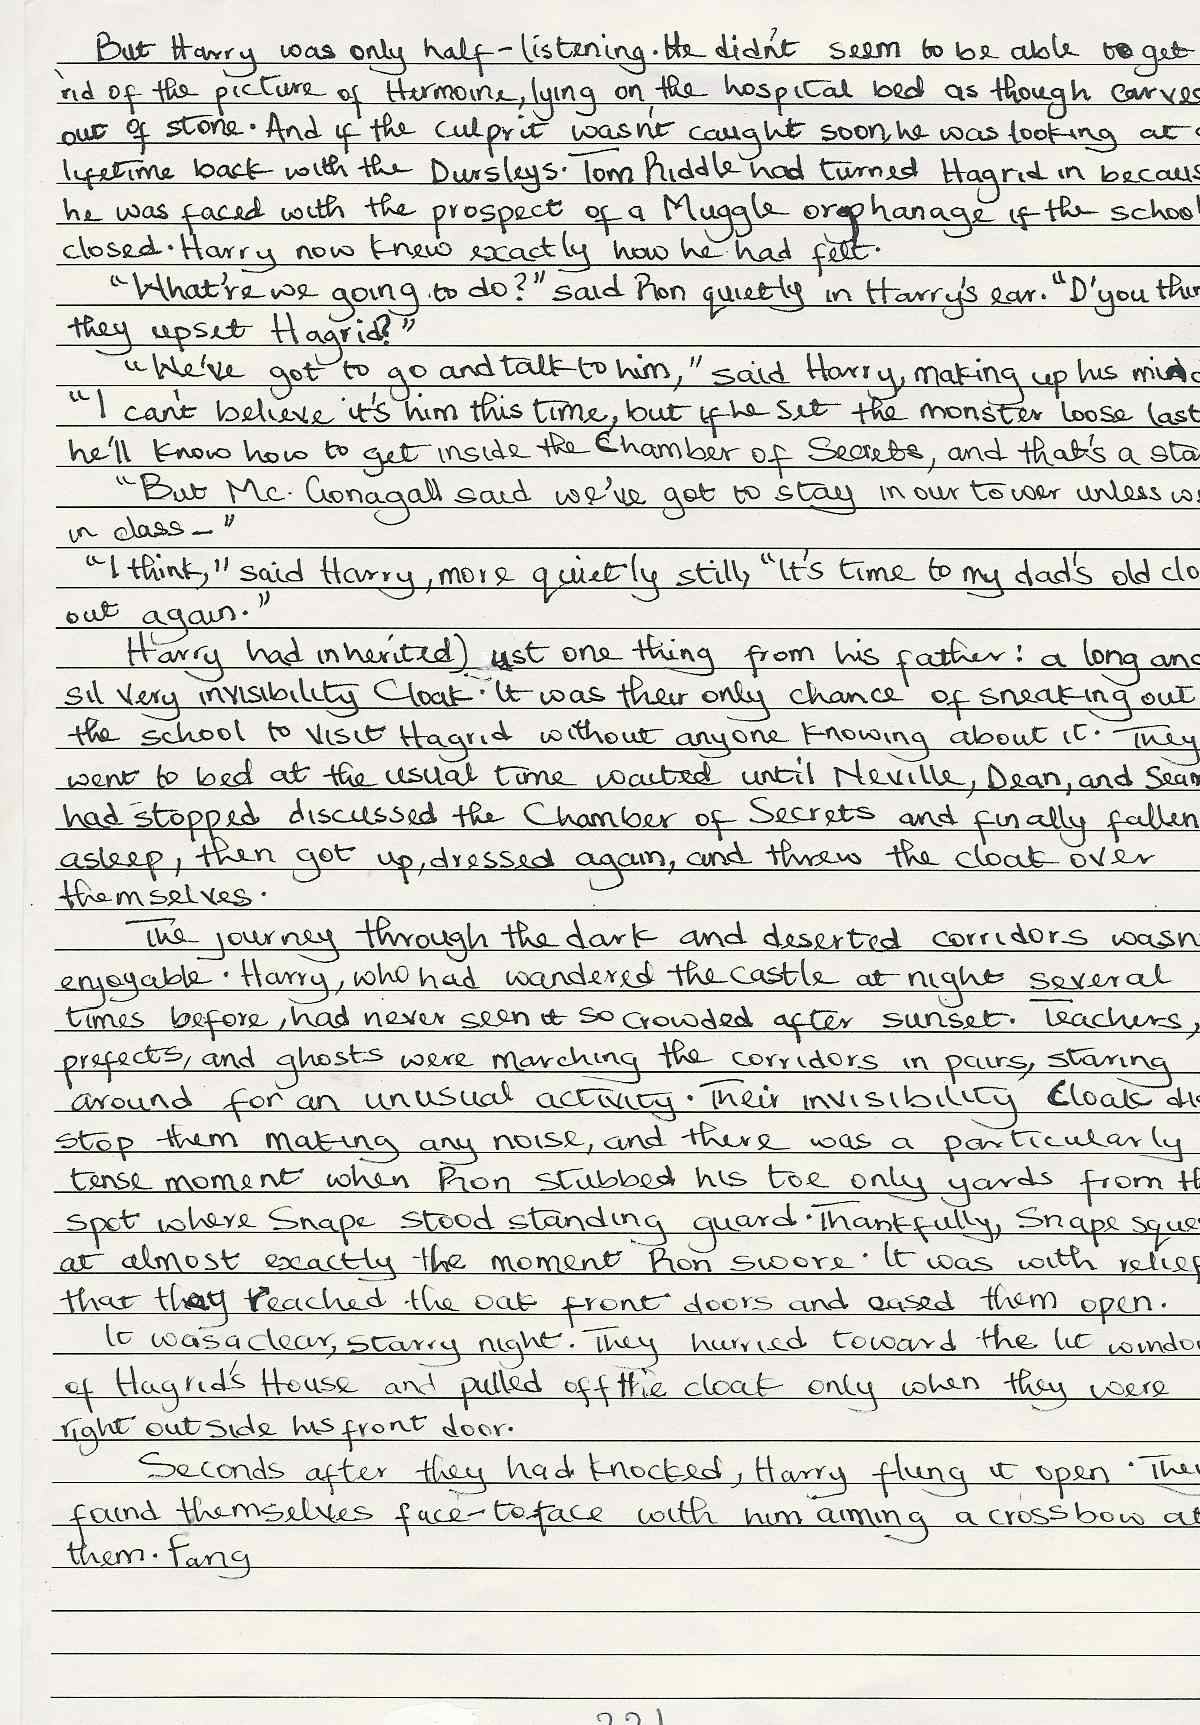 But Harry was only half-listening. He didn't seem to be able to get
rid of the picture of Hermoine, lying on the hospital bed as though carves
out of stone. And if the culprit wasn't caught soon, he was looking at
lifetime back with the Dursleys. Tom Riddle had turned Hagrid in becaus
he was faced with the prospect of a Muggle orphanage if the school
closed. Harry now knew exactly how he had felt.
"What're we going to do?" said Ron quietly in Harry's ear. "D'you thin
they upset Hagrid?"
"We've got to go and talk to him," said Harry, making up his mind
"I can't believe it's him this time, but if he set the monster loose last
he'll know how to get inside the Chamber of Secrets, and that's a sta
"But Mc. Gonagall said we've got to stay in our tower unless we
in class-"
"I think," said Harry, more quietly still, "It's time to my dad's old clo
out again."
Harry had inherited just one thing from his father: a long and
sil very invisibility Cloak. It was their only chance of sneaking out
the school to visit Hagrid without anyone knowing about it. They
went to bed at the usual time waited until Neville, Dean, and Seam
had stopped discussed the Chamber of Secrets and finally fallen
asleep, then got up, dressed again, and threw the cloak over
themselves.
The journey through the dark and deserted corridors wasn
enjoyable. Harry, who had wandered the castle at night several
times before, had never seen it so crowded after sunset. Teachers,
prefects, and ghosts were marching the corridors in pairs, staring
around for an unusual activity. Their invisibility Cloak di
stop them making any noise, and there was a particularly
tense moment when Ron stubbed his toe only yards from th
spot where Snape stood standing guard. Thankfully, Snape sque
at almost exactly the moment Ron swore. It was with relief
that they reached the oak front doors and eased them open.
It was a clear, starry night. They hurried toward the lit windo
of Hagrid's House and pulled off the cloak only when they were
right outside his front door.
Seconds after they had knocked, Harry flung it open. They
found themselves face-to face with him aiming a crossbow at
them. Fang